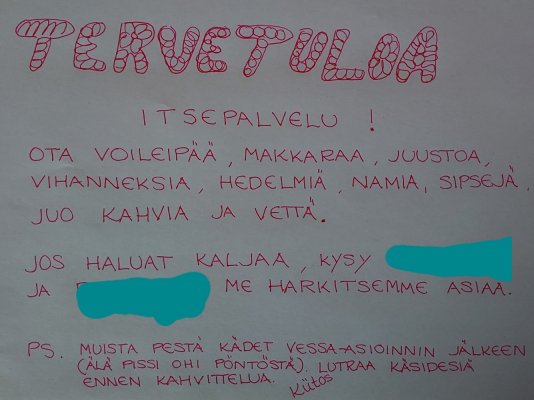 TERVETULOA
ITSEPALVELU !
OTA VOILEIPÄÄ, MAKKARAA, JUUSTOA,
VIHANNEKSIA, HEDELMIÄ, NAMIA, SIPSEJÄ,
JUO KAHVIA JA VETTÄ.
JOS HALUAT KALJAA, KYSY
JA ME HARKITSEMME ASIAA.
PS. MUISTA PESTÄ KÄDET VESSA-ASIOINNIN JÄLKEEN
(ÄLÄ PISSI OHI PÖNTÖSTÄ). LUTRAA KÄSIDESIÄ
ENNEN KAHVITTELUA. Kiitos